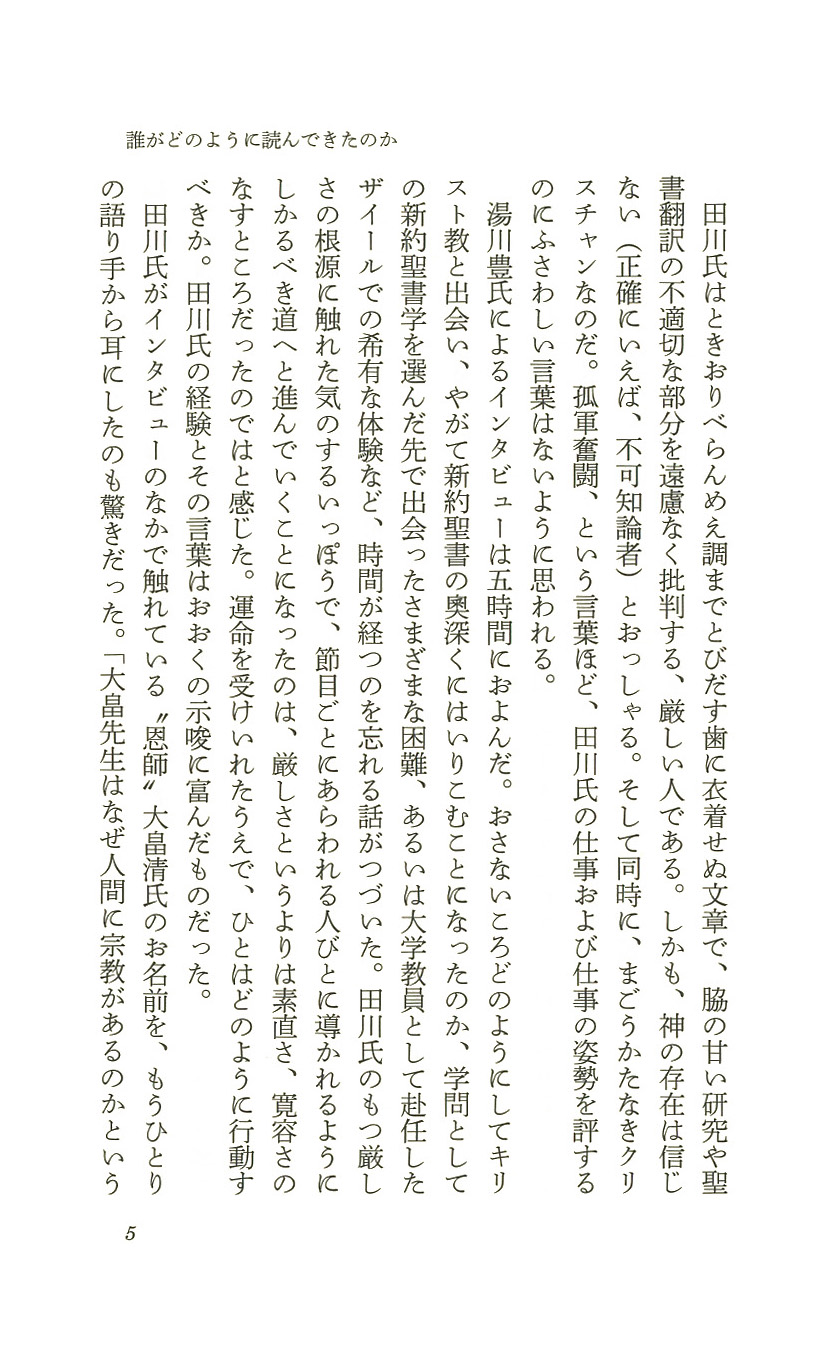 誰がどのように読んできたのか
田川氏はときおりべらんめえ調までとびだす歯に衣着せぬ文章で、脇の甘い研究や聖
書翻訳の不適切な部分を遠慮なく批判する、厳しい人である。しかも、神の存在は信じ
ない（正確にいえば、不可知論者）とおっしゃる。そして同時に、まごうかたなきクリ
スチャンなのだ。孤軍奮闘、という言葉ほど、田川氏の仕事および仕事の姿勢を評する
のにふさわしい言葉はないように思われる。
湯川豊氏によるインタビューは五時間におよんだ。おさないころどのようにしてキリ
スト教と出会い、やがて新約聖書の奥深くにはいりこむことになったのか、学問として
の新約聖書学を選んだ先で出会ったさまざまな困難、あるいは大学教員として赴任した
ザイールでの希有な体験など、時間が経つのを忘れる話がつづいた。田川氏のもつ厳し
さの根源に触れた気のするいっぽうで、節目ごとにあらわれる人びとに導かれるように
しかるべき道へと進んでいくことになったのは、厳しさというよりは素直さ、寛容さの
なすところだったのではと感じた。運命を受けいれたうえで、ひとはどのように行動す
べきか。田川氏の経験とその言葉はおおくの示唆に富んだものだった。
田川氏がインタビューのなかで触れている〝恩師〟大畠清氏のお名前を、もうひとり
の語り手から耳にしたのも驚きだった。「大畠先生はなぜ人間に宗教があるのかという
5